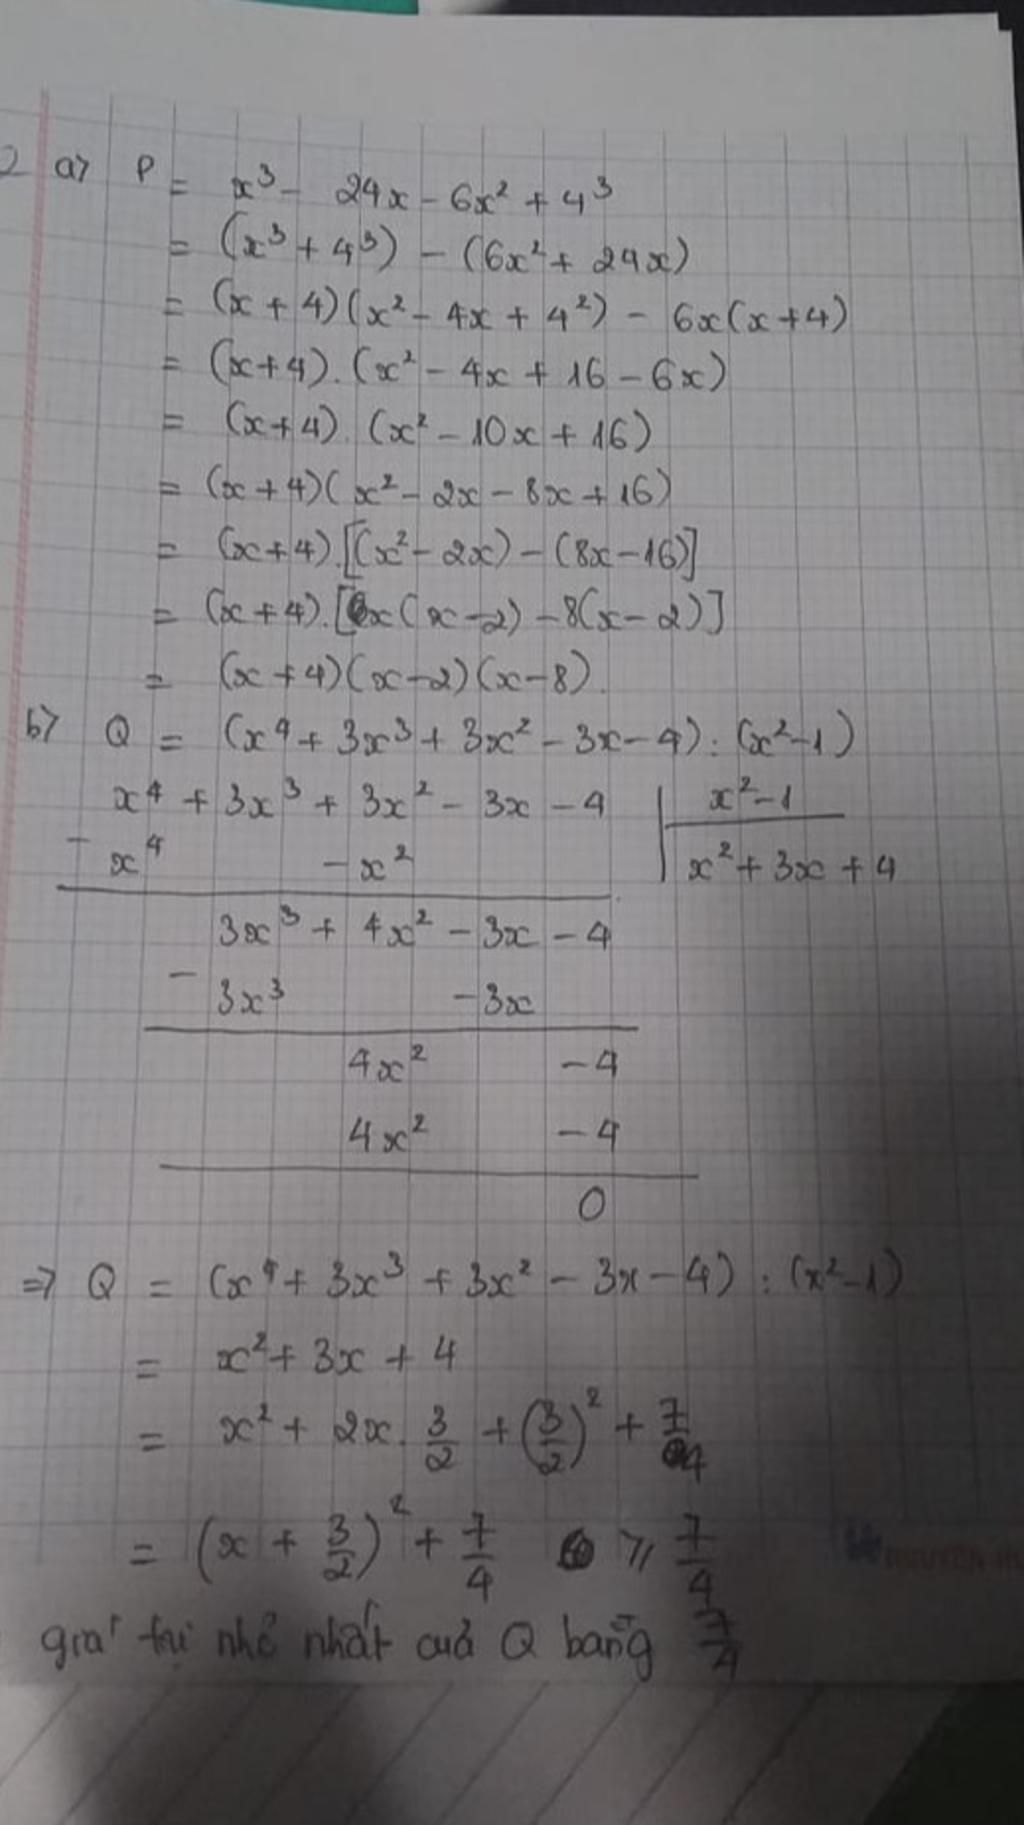 2 a) P = x³ - 24x - 6x² + 4³
= (x³ + 4³) - (6x² + 24x)
= (x + 4)(x² - 4x + 4²) - 6x(x + 4)
= (x+4).(x² - 4x + 16 - 6x)
= (x+4).(x² - 10x + 16)
= (x+4)(x² - 2x - 8x + 16)
= (x+4).[(x² - 2x) - (8x - 16)]
= (x+4).[x(x - 2) - 8(x - 2)]
= (x+4)(x-2)(x-8).
b) Q = (x⁴ + 3x³ + 3x² - 3x - 4) : (x² - 1)
x⁴ + 3x³ + 3x² - 3x - 4 | x² - 1
- x⁴ - x² | x² + 3x + 4
3x³ + 4x² - 3x - 4
- 3x³ - 3x
4x² - 4
4x² - 4
0
=> Q = (x⁴ + 3x³ + 3x² - 3x - 4) : (x² - 1)
= x² + 3x + 4
= x² + 2x. 3/2 + (3/2)² + 7/4
= (x + 3/2)² + 7/4 ≥ 7/4
giá trị nhỏ nhất của Q bằng 7/4